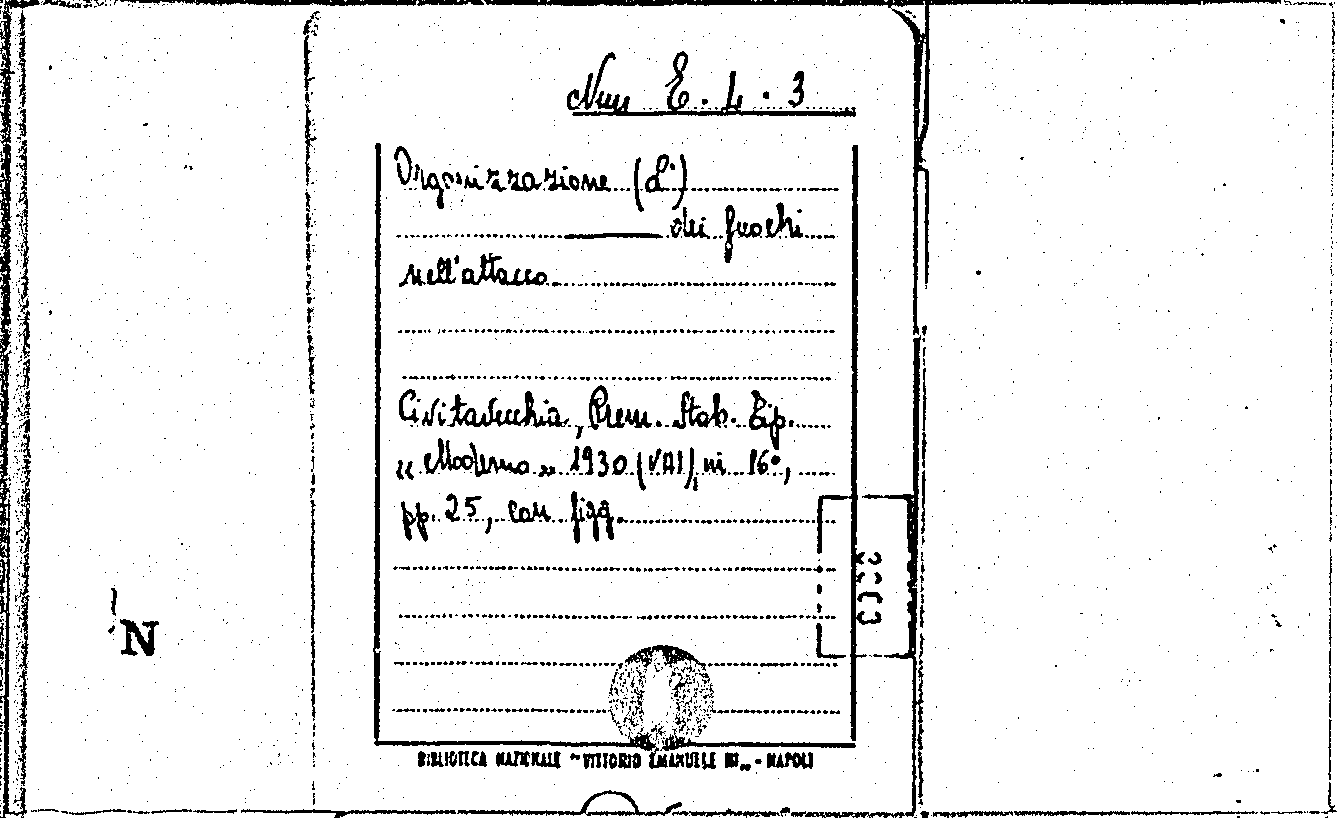 Nuu E. 4. 3
Organizzazione (L')
dei fuochi
nell'attacco.
Civitavecchia, Prem. Stab. Tip.
„ Moderno „ 1930 (VIII), in 16°,
pp. 25, con figg.
N
BIBLIOTECA NAZIONALE "VITTORIO EMANUELE III„ - NAPOLI